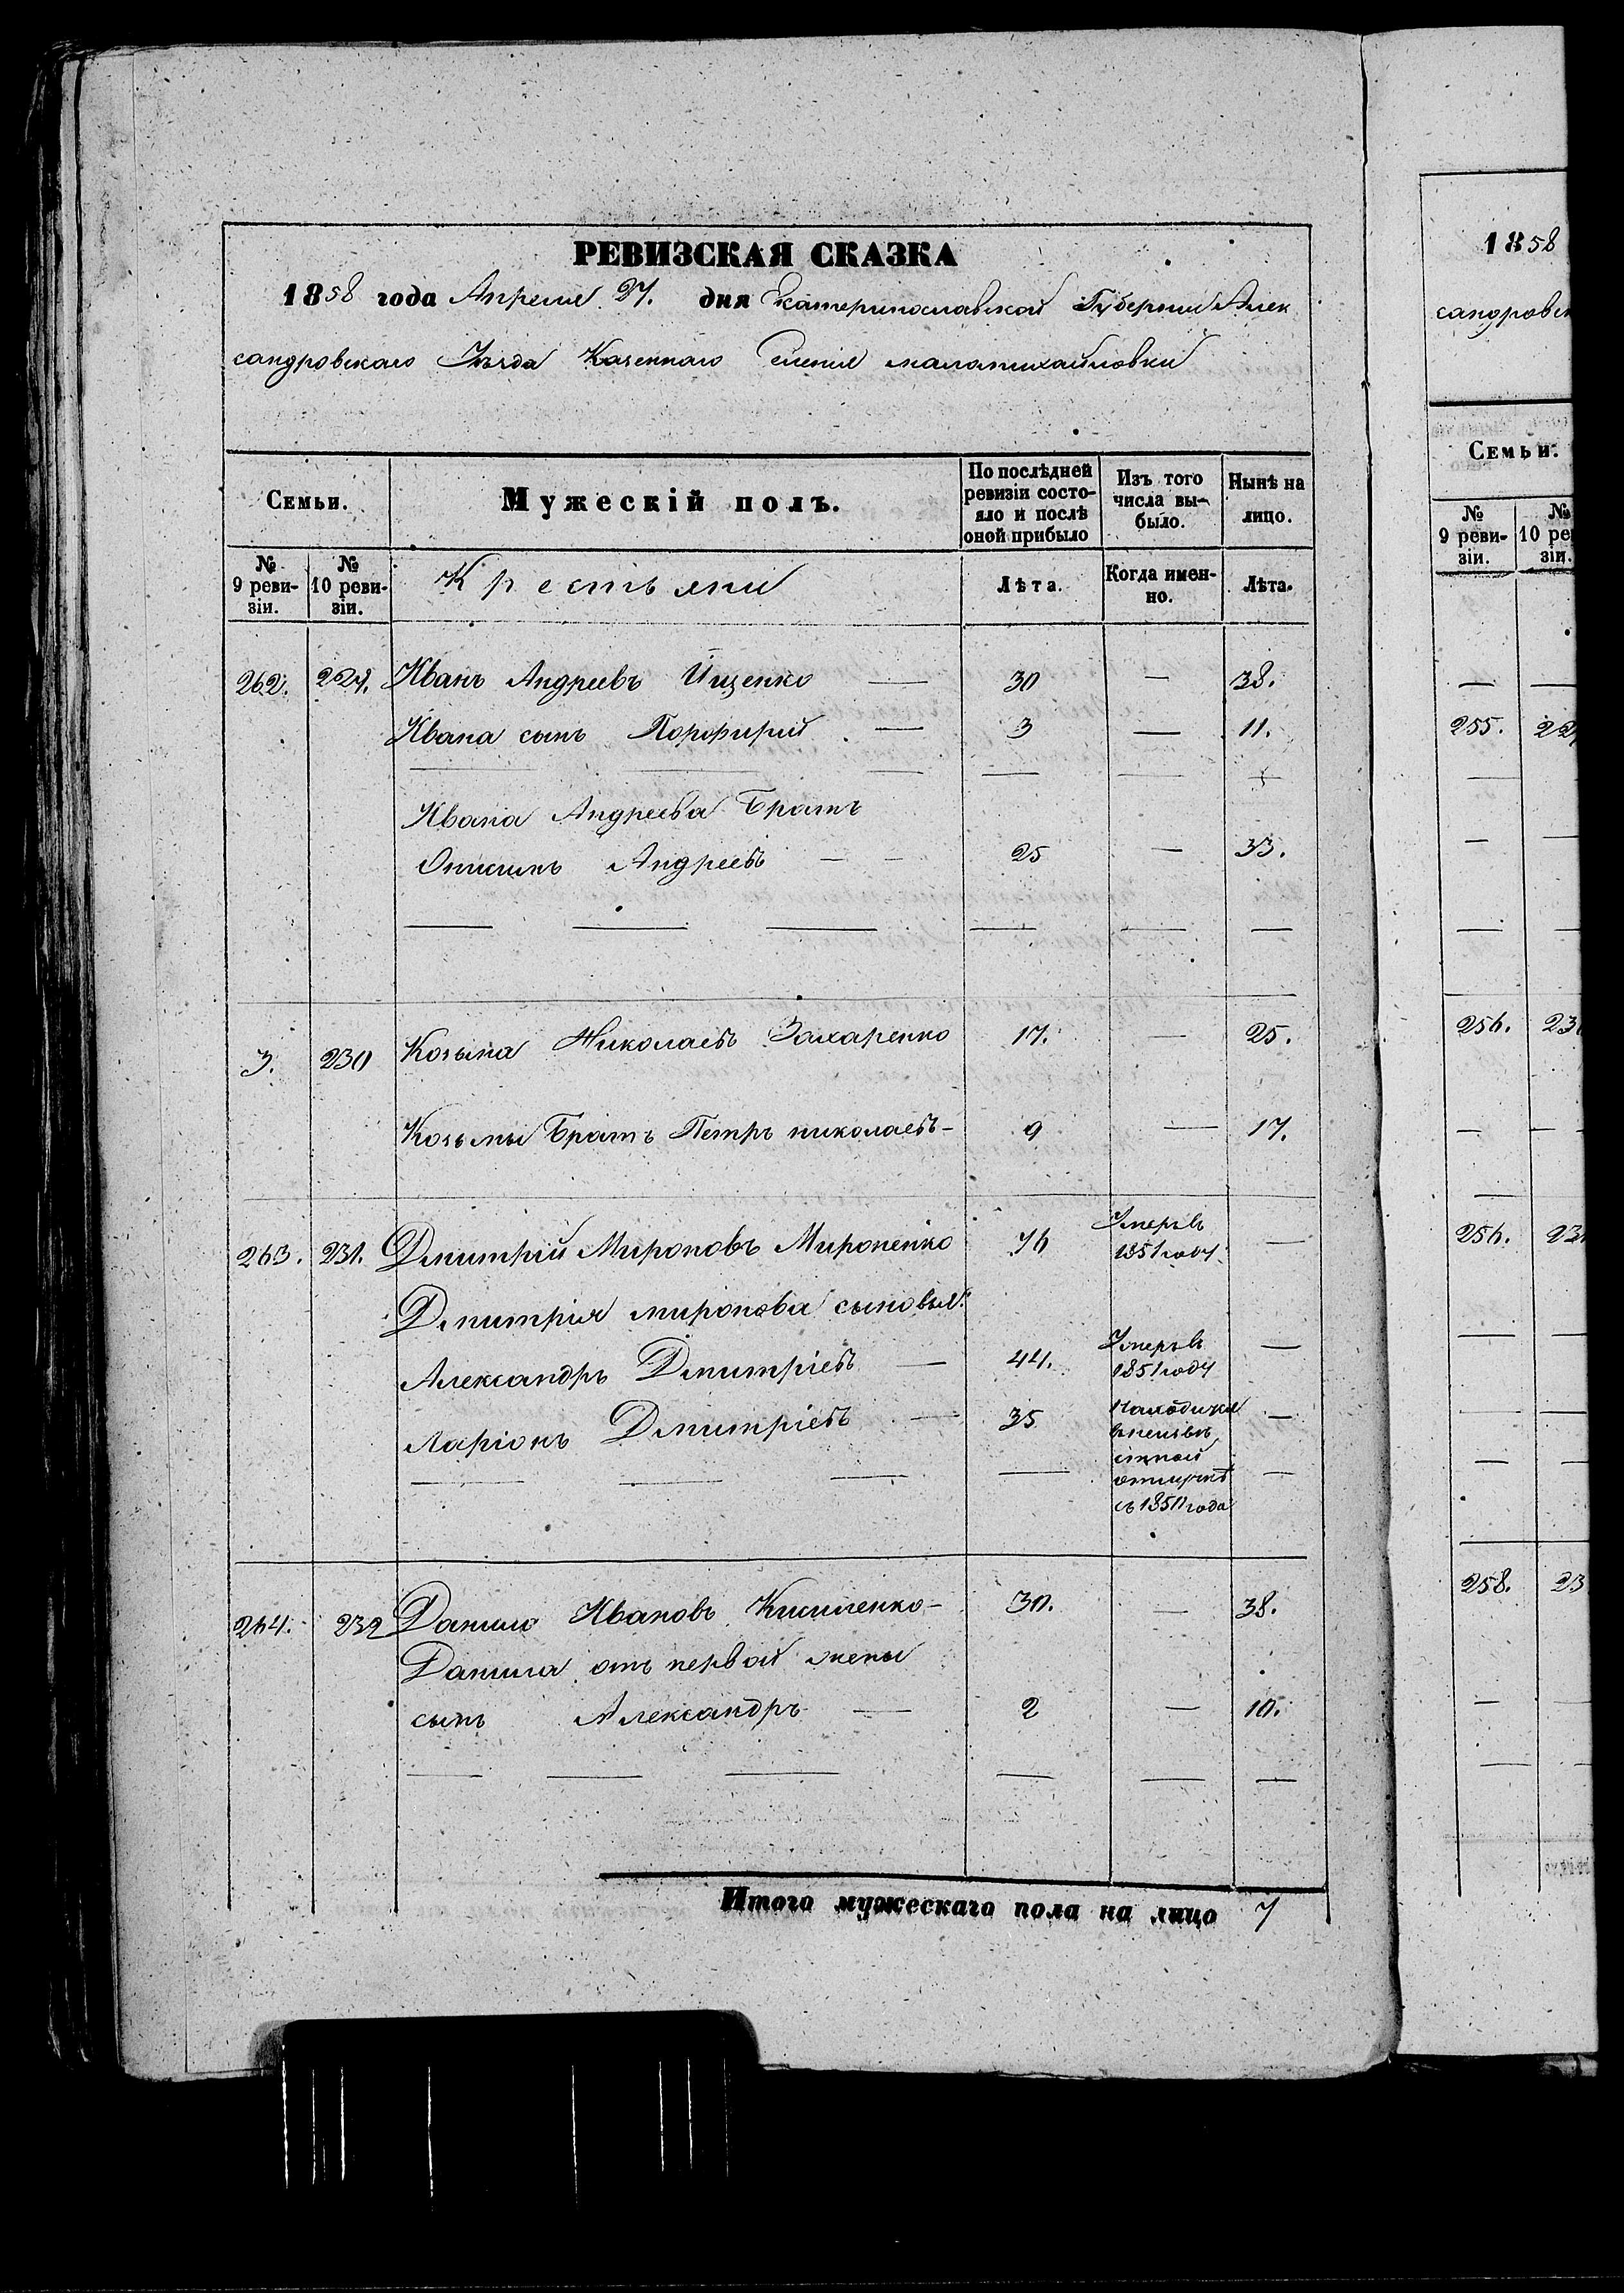 РЕВИЗСКАЯ СКАЗКА
1858 года Апреля 27. дня Екатеринославской Губернии Алек
сандровскаго Уѣзда Казеннаго Селенія маломихайловки
Семьи. Мужескій полъ. По послѣдней ревизіи состояло и послѣ оной прибыло Изъ того числа выбыло. Нынѣ на лицо.
№ 9 ревизіи. № 10 ревизіи. Крестьяни Лѣта. Когда именно. Лѣта.
262. Иванъ Андреевъ Ищенко — 30 — 38.
Ивана сынъ Порфирий — 3 — 11.
Ивана Андреева Братъ
Онисимъ Андреевъ — — 25 — 33.
3. 230 Козьма Николаевъ Захаренко 17. — 25.
Козьмы Братъ Петръ николаевъ — 9 — 17.
263. 231. Дмитрий Мироновъ Мироненко 76 Умеръ въ 1851 году —
Дмитрия миронова сыновья:
Александръ Дмитріевъ — 44. Умеръ въ 1851 году —
Ларіонъ Дмитріевъ — 35 Находится в неизвѣстной отлучкѣ съ 1851 года —
264. 232 Данило Ивановъ Кисиленко — 30. — 38.
Данила отъ первой жены
сынъ Александръ — 2 — 10.
Итого мужескаго пола на лицо 7
1858
сандровск
Семьи.
№ 9 ревизіи. № 10 реви зіи.
255. 22
256. 23
256. 23
258. 23